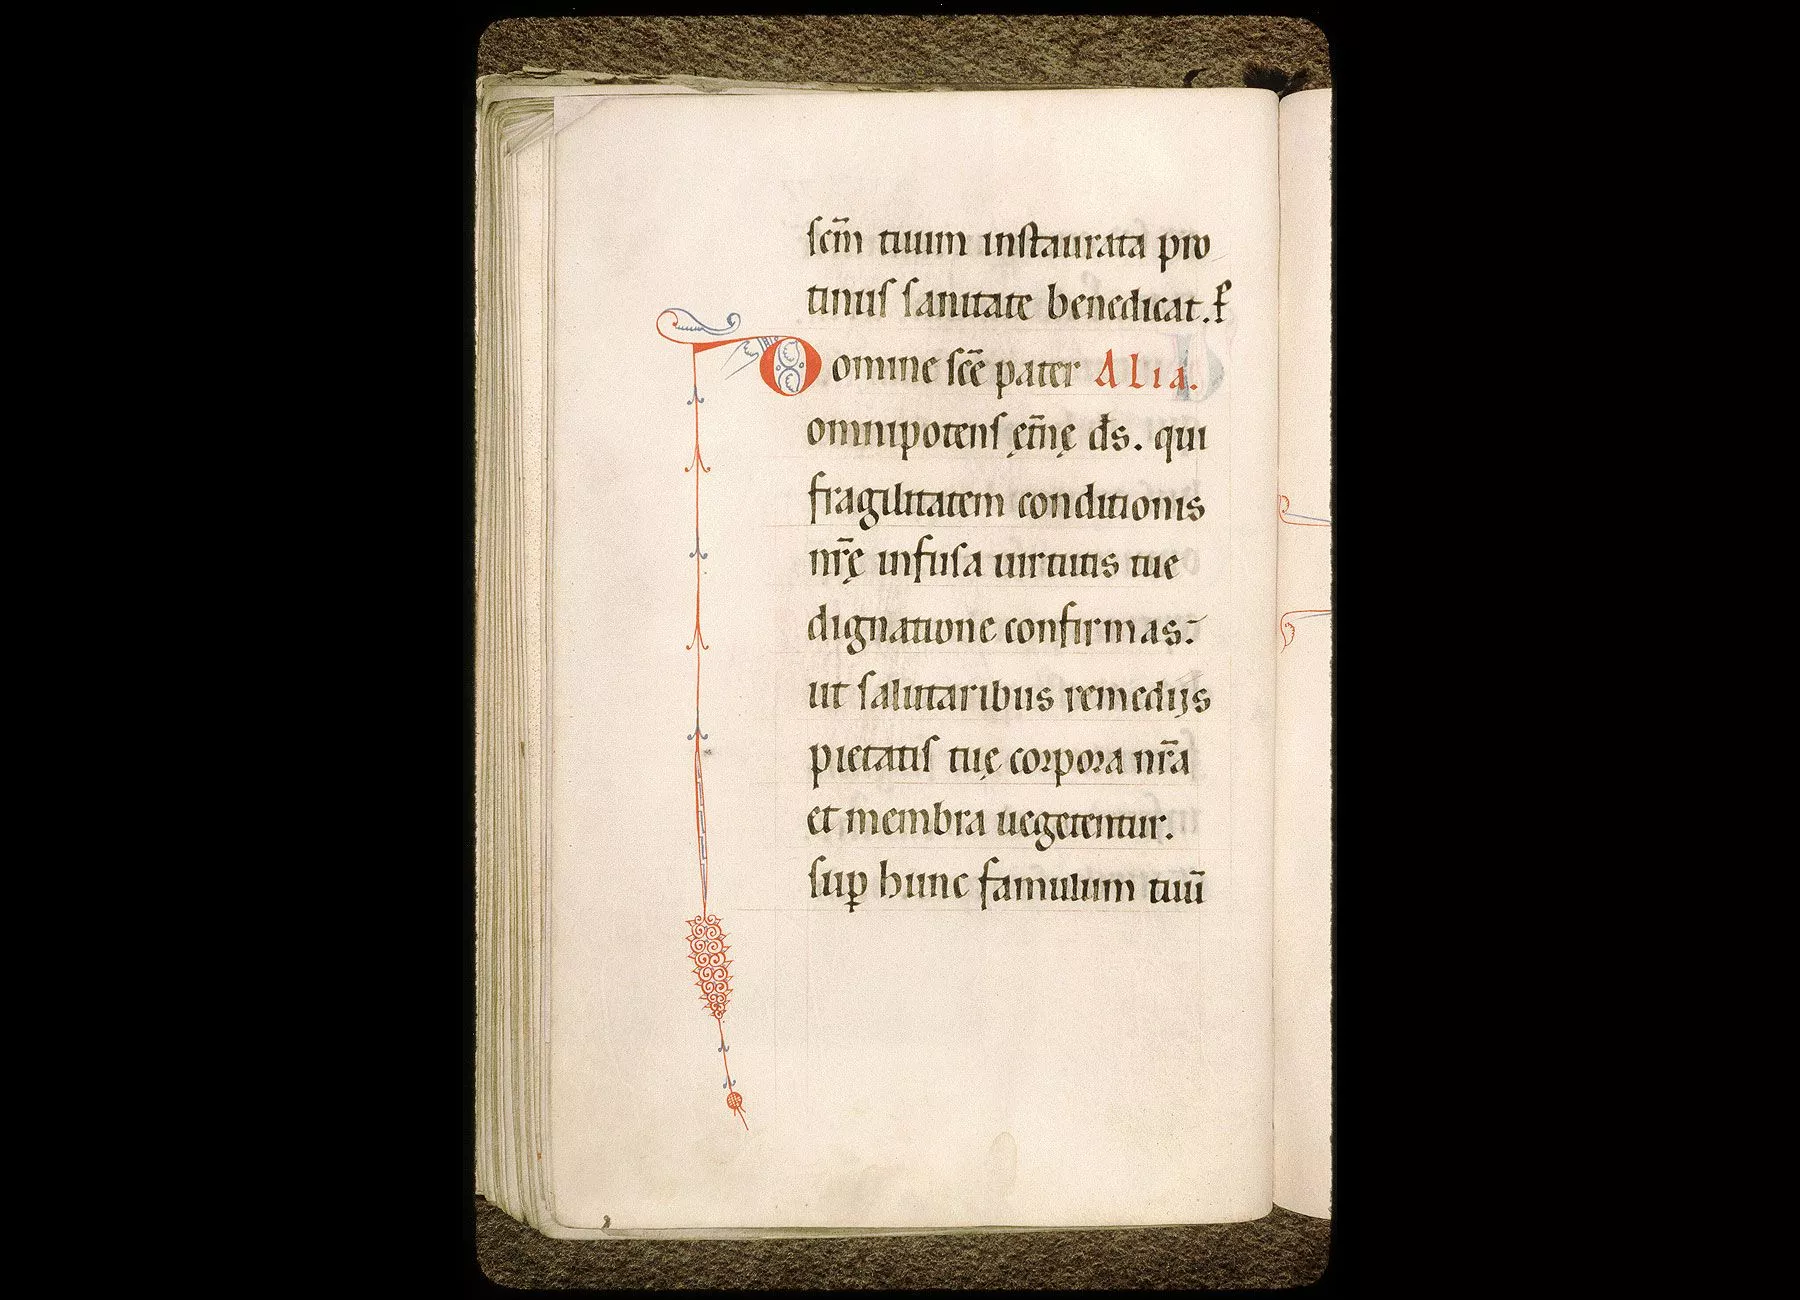 scm̄ tuum instaurata pro
tinus sanitate benedicat. P̄
Domine scē pater Alia.
omnipotens ęt̄nę ds̄. qui
fragilitatem conditionis
nr̄ę infusa uirtutis tue
dignatione confirmas.
ut salutaribus remedijs
pietatis tuę corpora nr̄a
et membra uegetentur.
suꝑ hunc famulum tuū